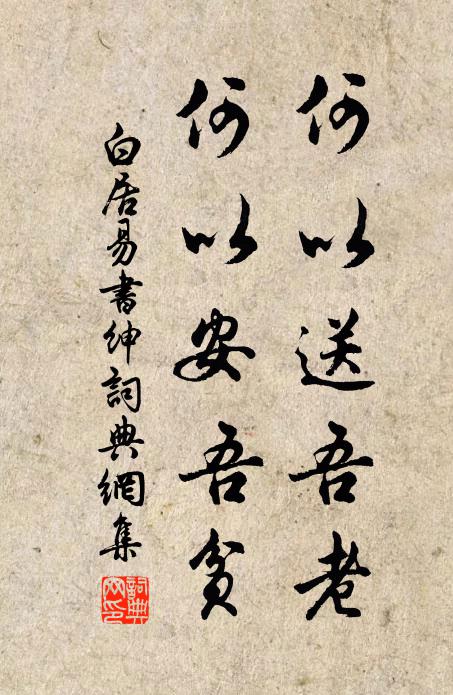 何以送吾老
何以安吾貧
白居易書紳詞典網集
詞典網印